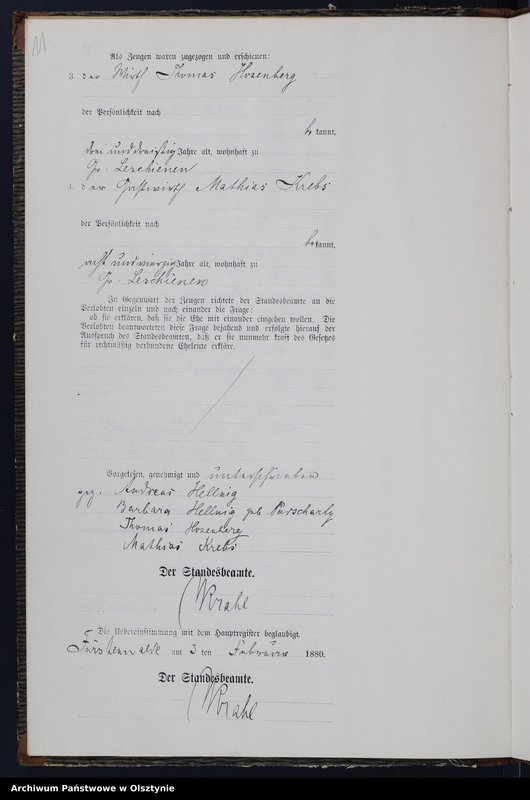 11
Als Zeugen waren zugezogen und erschienen:
3. der Wirth Thomas Hosenberg
der Persönlichkeit nach
be kannt,
drei und dreißig Jahre alt, wohnhaft zu
Gr. Leschienen
4. der Gastwirth Mathias Krebs
der Persönlichkeit nach
be kannt,
acht und vierzig Jahre alt, wohnhaft zu
Gr. Leschienen
In Gegenwart der Zeugen richtete der Standesbeamte an die
Verlobten einzeln und nach einander die Frage:
ob sie erklären, daß sie die Ehe mit einander eingehen wollen. Die
Verlobten beantworteten diese Frage bejahend und erfolgte hierauf der
Ausspruch des Standesbeamten, daß er sie nunmehr kraft des Gesetzes
für rechtmäßig verbundene Eheleute erkläre.
Vorgelesen, genehmigt und unterschrieben
gez. Andreas Hellwig
Barbara Hellwig geb
Thomas Hosenberg
Mathias Krebs
Der Standesbeamte.
Krahl
Die Uebereinstimmung mit dem Hauptregister beglaubigt.
Fürstenwalde am 3 ten Februar 1880.
Der Standesbeamte.
Krahl
Archiwum Państwowe w Olsztynie